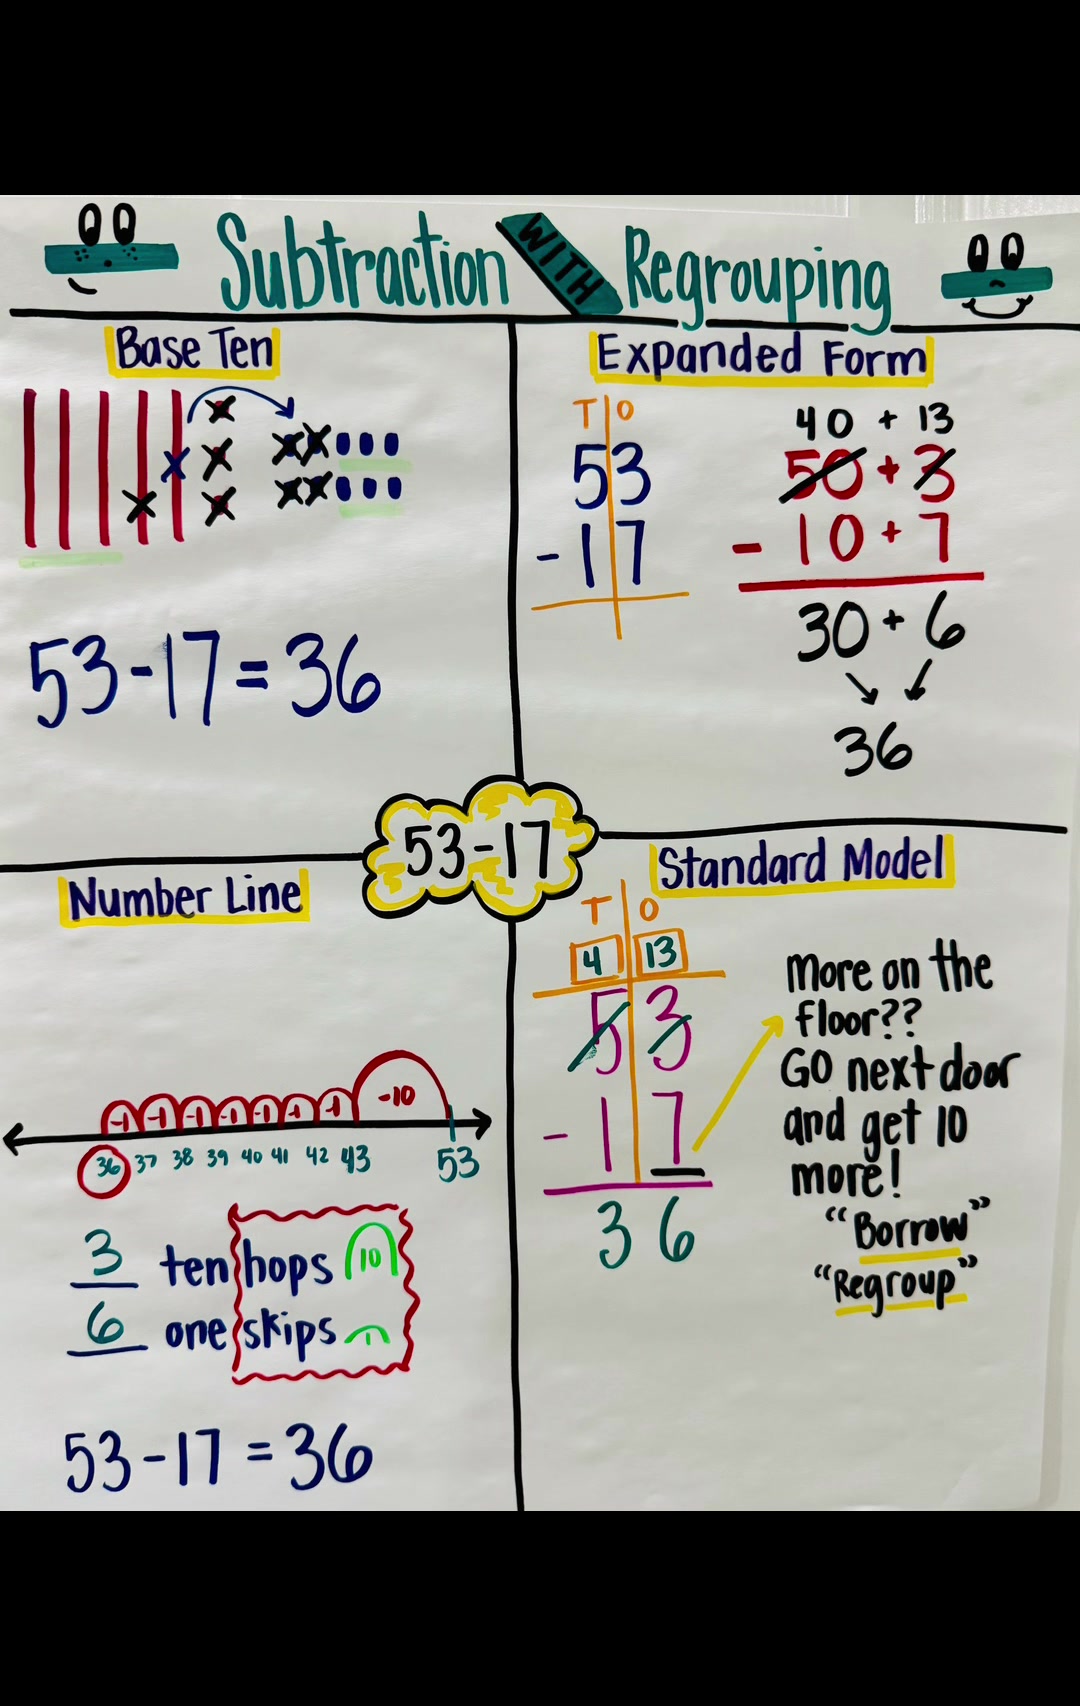 Subtraction WITH Regrouping
Base Ten
53-17=36
Expanded Form
T O
53
-17
40 + 13
50 + 3
- 10 + 7
30 + 6
36
53-17
Number Line
-1 -1 -1 -1 -1 -1 -1 -10
36 37 38 39 40 41 42 43 53
3 ten hops 10
6 one skips 1
53-17=36
Standard Model
T O
4 13
5 3
- 1 7
3 6
More on the
floor??
GO next door
and get 10
more!
"Borrow"
"Regroup"